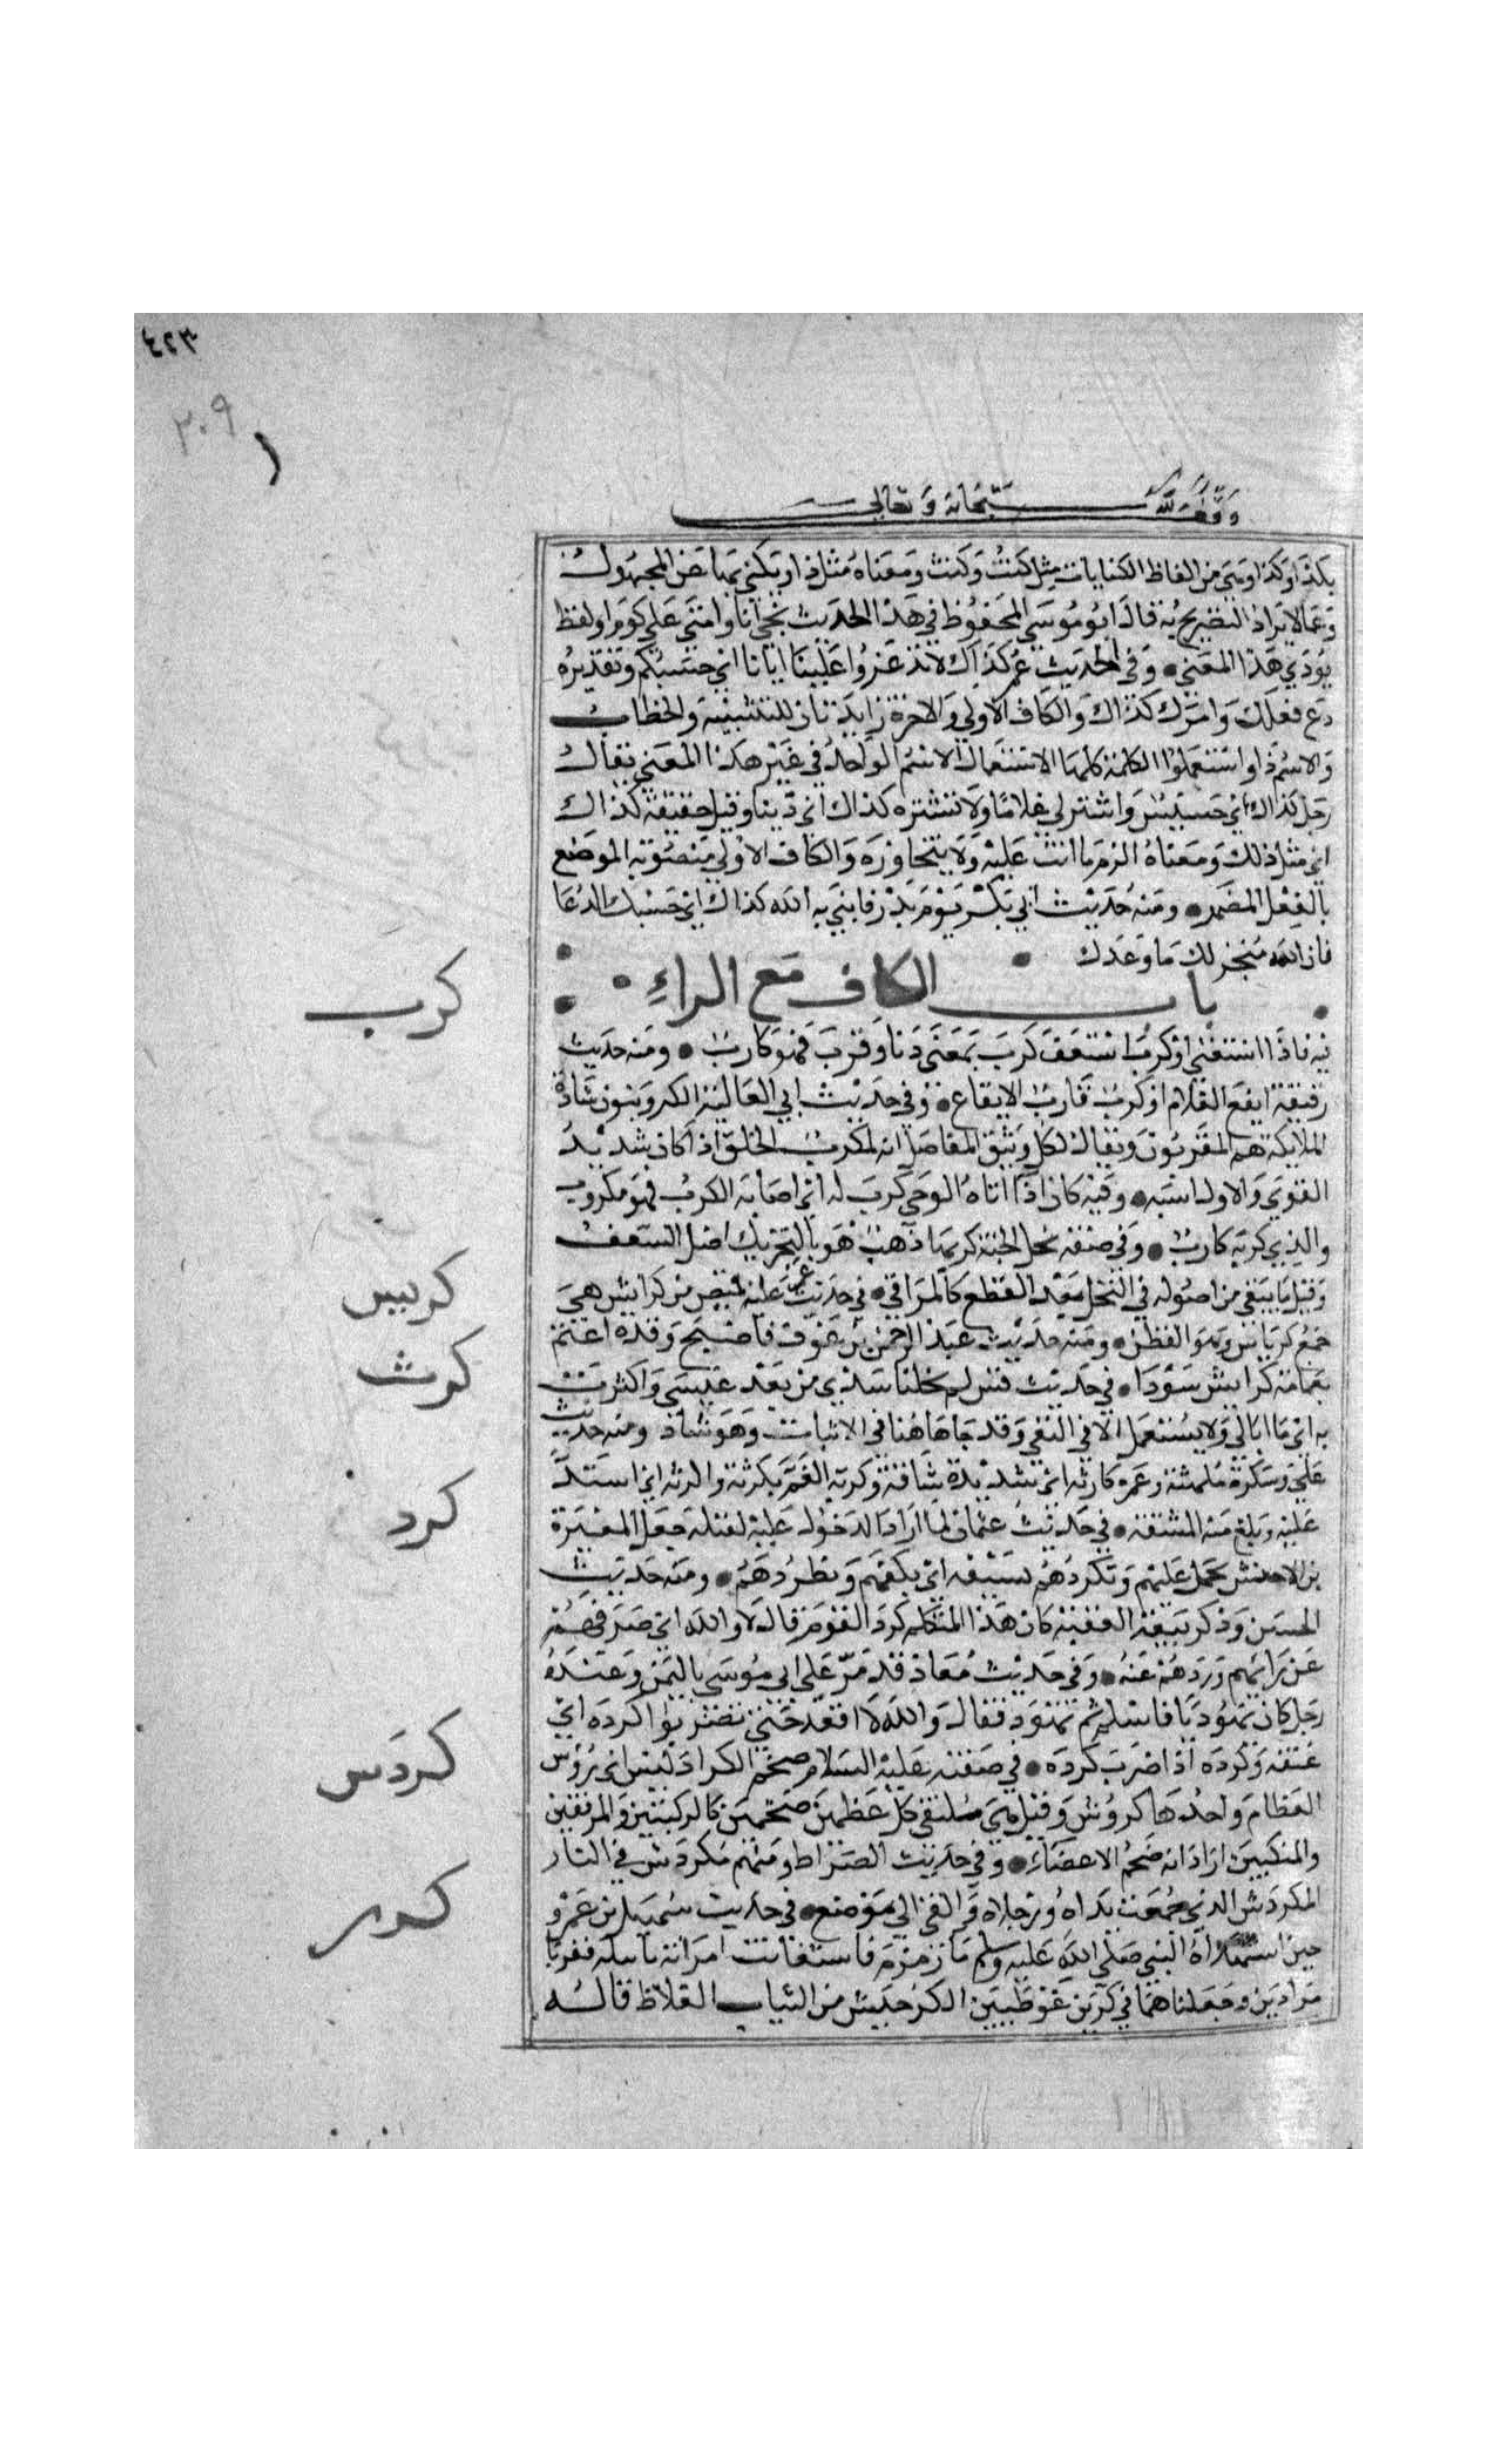 ٤٢٣
٣٠٩
وقف لله سبحانه وتعالى
بكذا وكذا وهي من الفاظ الكنايات مثل كيت وكيت ومعناه مثل ذا ويكنى بها عن المجهول
وعما لا يراد التصريح به قال ابو موسى المحفوظ في هذا الحديث نجي انا وامتي على كوم او لفظ
يؤدي هذا المعنى وفي الحديث عمر كذاك لا تذعروا علينا ابلنا اي حسبكم وتقديره
دع فعلك وامرك كذاك والكاف الاولى والاخرة زايدتان للتشبيه والخطاب
والاسم ذا واستعملوا الكلمة كلها الاستعمال الاسم الواحد في غير هذا المعنى يقال
رجل كذاك اي خسيس واشتر لي غلاما ولا تشتره كذاك اي دنيا وقيل حقيقة كذاك
اي مثل ذلك ومعناه الزم ما انت عليه ولا تتجاوزه والكاف الاولى منصوبة الموضع
بالفعل المضمر ومنه حديث ابي بكر يوم بدر يا نبي الله كذاك اي حسبك الدعا
فان الله منجز لك ما وعدك
باب الكاف مع الراء
كرب
فيه فاذا استغنى او كرب استعف كرب بمعنى دنا وقرب فهو كارب ومنه حديث
رقيقة ايفع الغلام او كرب قارب الايفاع وفي حديث ابي العالية الكروبيون سادة
الملايكة هم المقربون ويقال لكل وثيق المفاصل انه لمكرب الخلق اذا كان شديد
القوى والاول اشبه وفيه كان اذا اتاه الوحي كرب له اي اصابه الكرب فهو مكروب
والذي كربه كارب وفي صفة نخل الجنة كربها ذهب هو بالتحريك اصل السعف
كربس
وقيل ما يبقى من اصوله في النخل بعد القطع كالمراقي في حديث عمر وعليه قميص من كرابيس هي
جمع كرباس وهو القطن ومنه حديث عبد الرحمن بن عوف فاصبح وقد اعتم
كرث
بعمامة كرابيس سودا في حديث قس لم يخلنا سدى من بعد عيسى واكترث
به اي ما ابالي ولا يستعمل الا في النفي وقد جا هاهنا في الاثبات وهو شاذ ومنه حديث
علي وسكرة ملهثة وغمرة كارثة اي شديدة شاقة وكرثه الغم يكرثه واكرثه اي اشتد
كرد
عليه وبلغ منه المشقة في حديث عثمان لما ارادوا الدخول عليه لقتله جعل المغيرة
بن الاخنس يحمل عليهم ويكردهم بسيفه اي يكفهم ويطردهم ومنه حديث
الحسن وذكر بيعة العقبة كان هذا المتكلم كرد القوم قال لا والله اي صرفهم
عن رايهم وردهم عنه وفي حديث معاذ قدم على ابي موسى باليمن وعنده
رجل كان يهوديا فاسلم ثم تهود فقال والله لا اقعد حتى تضربوا كرده اي
كردس
عنقه وكرده اذا ضرب كرده في صفته عليه السلام ضخم الكراديس اي رؤس
العظام واحدها كردوس وقيل هي ملتقى كل عظمين ضخمين كالركبتين والمرفقين
والمنكبين اراد انه ضخم الاعضاء وفي حديث الصراط ومنهم مكردس في النار
كرر
المكردس الذي جمعت يداه ورجلاه والقي الى موضع في حديث سهيل بن عمرو
حين استهداه النبي صلى الله عليه وسلم ما زمزم فاستعانت امراته باثلة ففرتا
مزادتين وجعلتاهما في كرين غوطيين الكر جنس من الثياب الغلاظ قاله